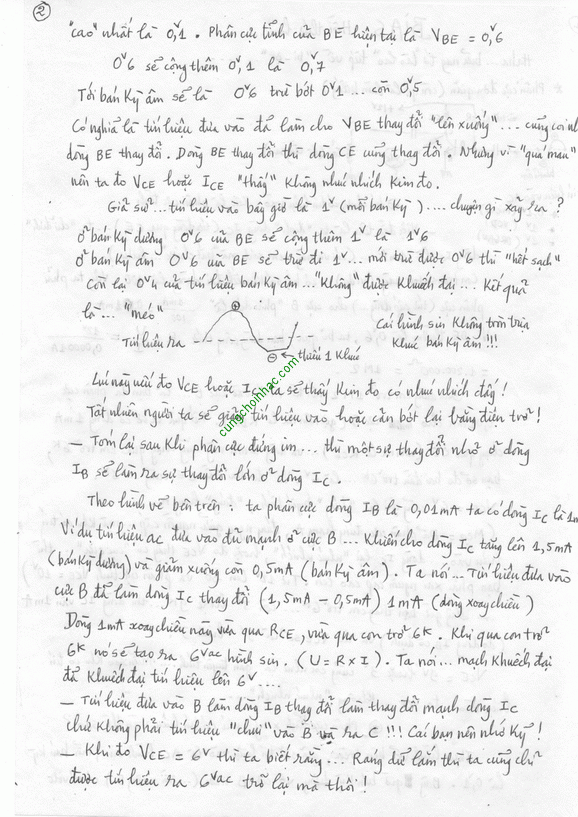 2
"cao" nhất là 0,v1. Phân cực tĩnh của BE hiện tại là VBE = 0,v6
0v6 sẽ cộng thêm 0,v1 là 0,v7
Tới bán kỳ âm sẽ là 0v6 trừ bớt 0v1 ... còn 0,v5
Có nghĩa là tín hiệu đưa vào đã làm cho VBE thay đổi "lên xuống" ... cũng coi như
dòng BE thay đổi. Dòng BE thay đổi thì dòng CE cũng thay đổi. Nhưng vì "quá mau"
nên ta đo VCE hoặc ICE "thấy" không nhúc nhích kim đo.
Giả sử ... tín hiệu vào bây giờ là 1v (mỗi bán kỳ) .... chuyện gì xảy ra ?
ở bán kỳ dương 0v6 của BE sẽ cộng thêm 1v là 1v6
ở bán kỳ âm 0v6 của BE sẽ trừ đi 1v ... mới trừ được 0v6 thì "hết sạch"
Còn lại 0v4 của tín hiệu bán kỳ âm ... "không" được khuếch đại ... Kết quả
là ... "méo"
+
Cái hình sin không tròn trịa
Tín hiệu ra
khúc bán kỳ âm !!!
- thiếu 1 khúc
Lúc này nếu đo VCE hoặc IC ta sẽ thấy kim đo có nhúc nhích đấy !
Tất nhiên người ta sẽ giảm tín hiệu vào hoặc cản bớt lại bằng điện trở !
– Tóm lại sau khi phân cực đứng im ... thì một sự thay đổi nhỏ ở dòng
IB sẽ làm ra sự thay đổi lớn ở dòng IC.
Theo hình vẽ bên trên : ta phân cực dòng IB là 0,01mA ta có dòng IC là 1m
Ví dụ tín hiệu ac đưa vào đủ mạnh ở cực B ... khiến cho dòng IC tăng lên 1,5mA
(bán kỳ dương) và giảm xuống còn 0,5mA (bán kỳ âm). Ta nói ... Tín hiệu đưa vào
cực B đã làm dòng IC thay đổi (1,5mA – 0,5mA) 1mA (dòng xoay chiều)
Dòng 1mA xoay chiều này vừa qua RCE, vừa qua con trở 6K. Khi qua con trở
6K nó sẽ tạo ra 6vac hình sin. (U = R x I). Ta nói ... mạch khuếch đại
đã khuếch đại tín hiệu lên 6v ....
– Tín hiệu đưa vào B làm dòng IB thay đổi làm thay đổi mạnh dòng IC
chứ không phải tín hiệu "chui" vào B và ra C !!! Các bạn nên nhớ kỹ !
– Khi đo VCE = 6v thì ta biết rằng ... Ráng dữ lắm thì ta cũng chỉ
được tín hiệu ra 6vac trở lại mà thôi !
cungchoinhac.com